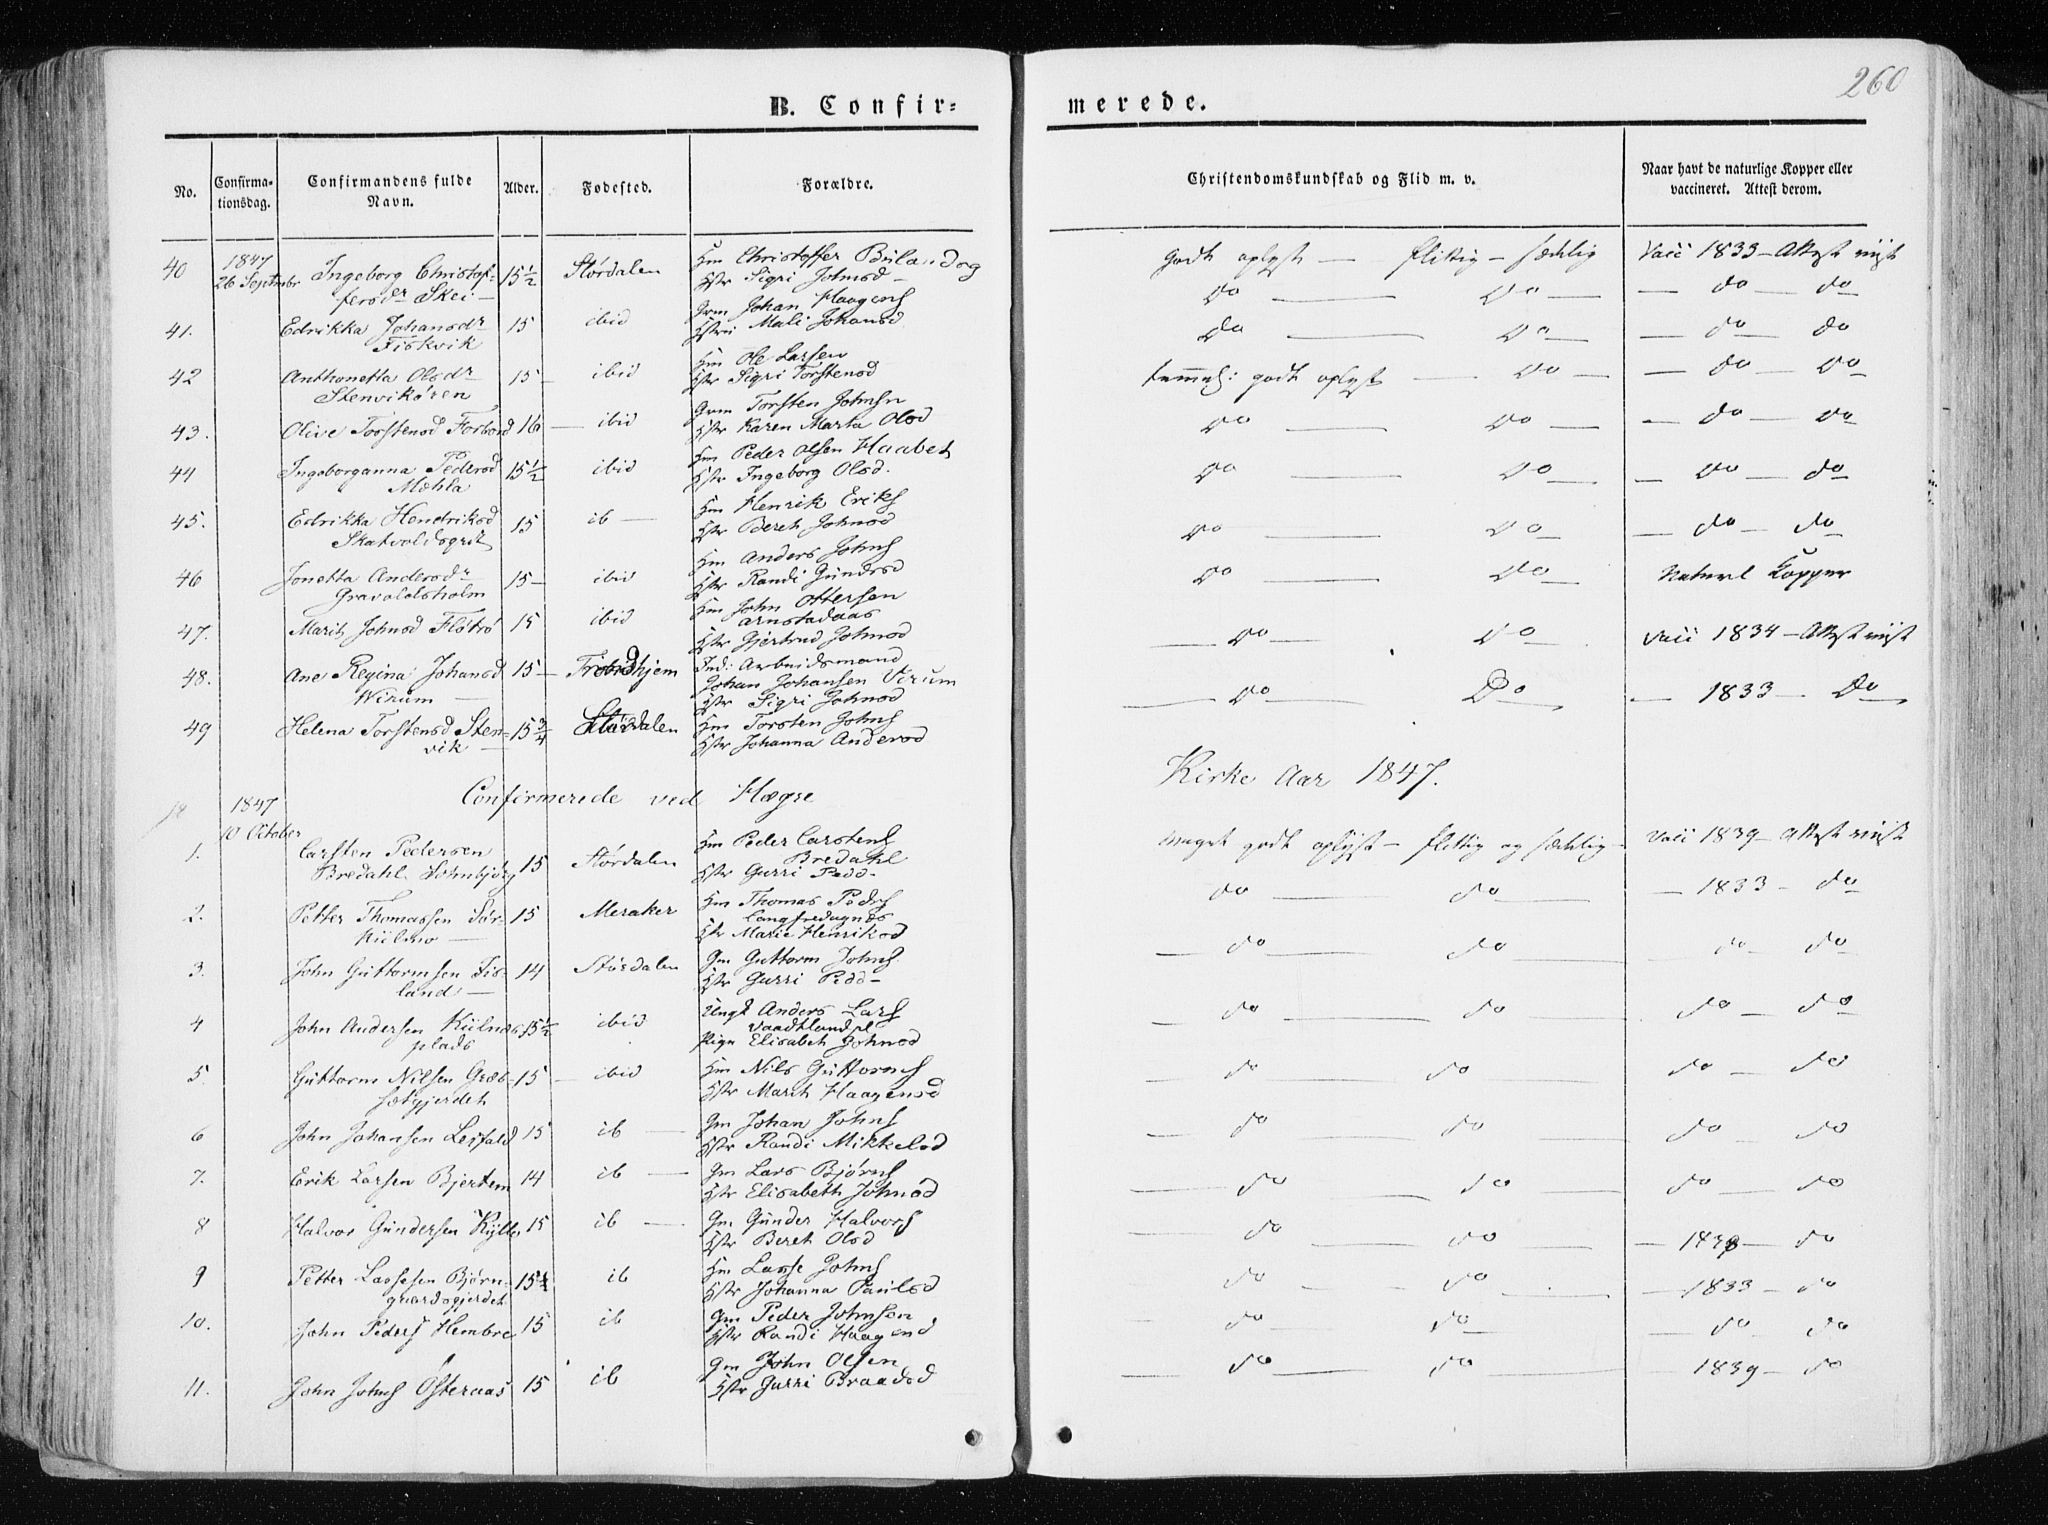 260
B. Confir=
merede.
No.
Confirma-
tionsdag.
Confirmandens fulde
Navn.
Alder.
Fødested.
Forældre.
Christendomskundskab og Flid m. v.
Naar havt de naturlige Kopper eller
vaccineret. Attest derom.
40 1847 26 Septembr Ingeborg Christof-
fersdr Skei — 15½ Størdalen Hm Christoffer
Hstr Sigri Johnsd — godt oplyst — flittig — sædelig Vacc 1833 — Attest viist
41. Edrikka Johansdr
Fiskvik 15 ibid Grm Johan Haagens
Hstru Mali Johansd do — do — — do — do
42 Anthonetta Olsdr
Stenvikören 15 — ibid Hm Ole Larsen
Hstr Sigri Torstensd do — do — — do — do
43. Olive Torstensd Forbord 16 — ibid Grm Torsten Johnsn
Hstr Karen Marta Olsd temmel: godt oplyst — do — — do — do
44 Ingeborganna Pedersd
Mæhla 15½ ibid Hm Peder Olsen Haabet
Hstr Ingeborg Olsd. do — do — — do — do
45. Edrikka Hendriksd
15 ib — Hm Henrik Eriks
Hstr Bereh Johnsd do — do — — do — do
46 Jonetta Andersdr
Gravoldsholm 15 — ibid Hm Anders Johns
Hstr Randi Gundrsd do — do — — do — do
47. Marit Johnsd Flötrö 15 ibid Hm John Ottersen
Arnstadaas
Hstr Gjertrud Johnsd do — do — Naturl Kopper
48. Ane Regina Johansd
Wirum — 15 — Trondhjem Ind: Arbeidsmand
Johan Johansen Virum
Hstr Sigri Johnsd — do — do — Vacc 1834 — Attest viist
49 Helena Torstensd Sten-
vik — 15¾ Størdalen Hm Torsten Johns
Hstr Johanna Andersd — do — Do — — 1833 — Do
Confirmerede ved Hægre
Kirke Aar 1847.
1. 1847 10 October Carsten Pedersen
Bredahl 15 Størdalen Hm Peder Carstens
Bredahl
Hstr Gurri Pedd — meget godt oplyst — flittig og sædelig — Vacc 1839 — Attest viist
2. Petter Thomassen Sör-
Kiilmo — 15 Meraker Hm Thomas Peds
Hstr Marie Henriksd do — do — — 1833 — do
3. John Guttormsen Fis-
land — 14 Størdalen Gm Guttorm Johns
Hstr Gurri Pedd — — do — do — do — do
4 John Andersen Kiilnæs
plads 15½ ibid Ungk Anders Lars
Vaadtland pl
Pige Elisabeth Johnsd — do — do — do — do
5. Guttorm Nilsen Græs-
sætgjerdet 15 — ibid Hm Nils Guttorms
Hstr Marit Haagensd — do — do — do — do
6 John Johansen Leifald 15 ib — Gm Johan Johns
Hstr Randi Mikkelsd — do — do — do — do
7. Erik Larsen Bjertem 14 ib — Gm Lars Björns
Hstr Elisabeth Johnsd — do — do — do — do
8 Halvor Gundersen Kyllo 15 ib — Gm Gunder Halvors
Hstr Bereh Olsd — do — do — — do
9 Petter Lassesen Björn-
gaardsgjerdet 15¼ ib Hm Lasse Johns
Hstr Johanna Paulsd — do — do — — 1833 — do
10. John Peders Hembre 15 ib Gm Peder Johnsen
Hstr Randi Haagensd — do — do — — do — do
11. John Johns Österaas 15 ib Gm John Olsen
Hstr Gurri Braadsd — do — do — — 1839 — do